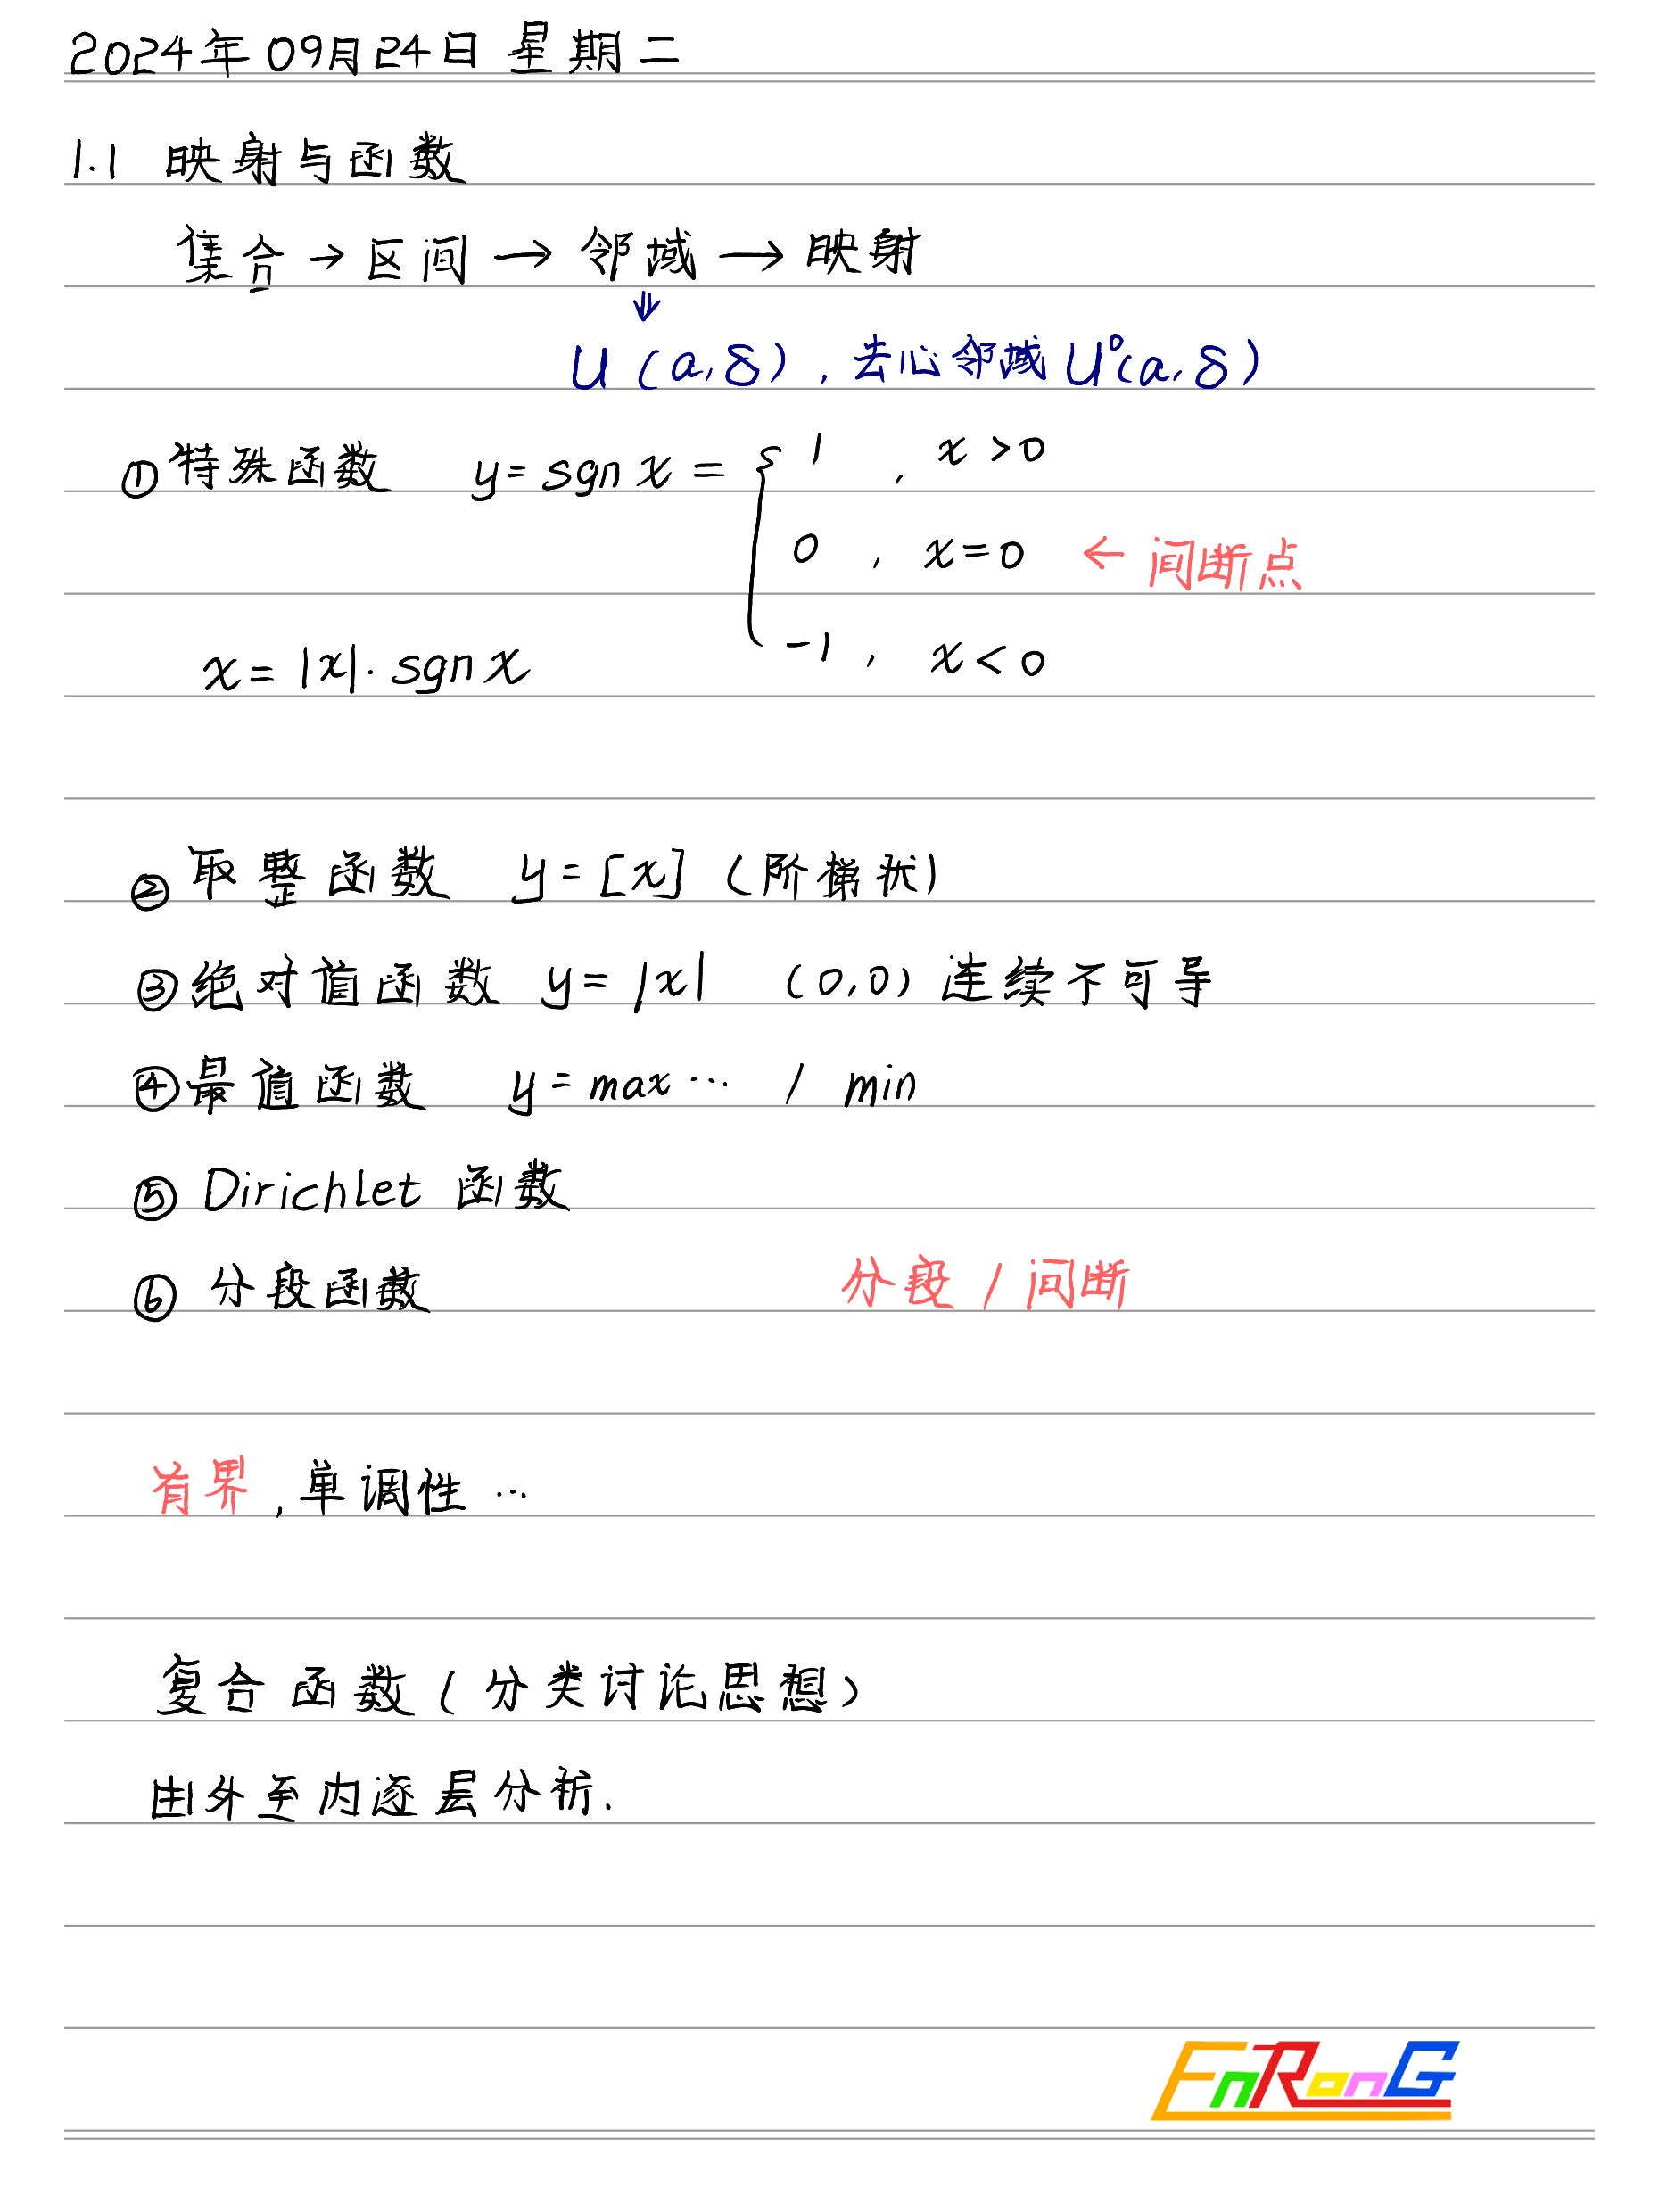 2024年09月24日 星期二
1.1 映射与函数
集合→区间→邻域→映射
⇓
U(a,δ),去心邻域U°(a,δ)
①特殊函数 y=sgn x={ 1 , x>0
0 , x=0 ←间断点
-1 , x<0
x=|x|·sgn x
②取整函数 y=[x](阶梯状)
③绝对值函数 y=|x| (0,0)连续不可导
④最值函数 y=max… / min
⑤Dirichlet 函数
⑥分段函数 分段/间断
有界,单调性…
复合函数(分类讨论思想)
由外至内逐层分析.
EnRonG